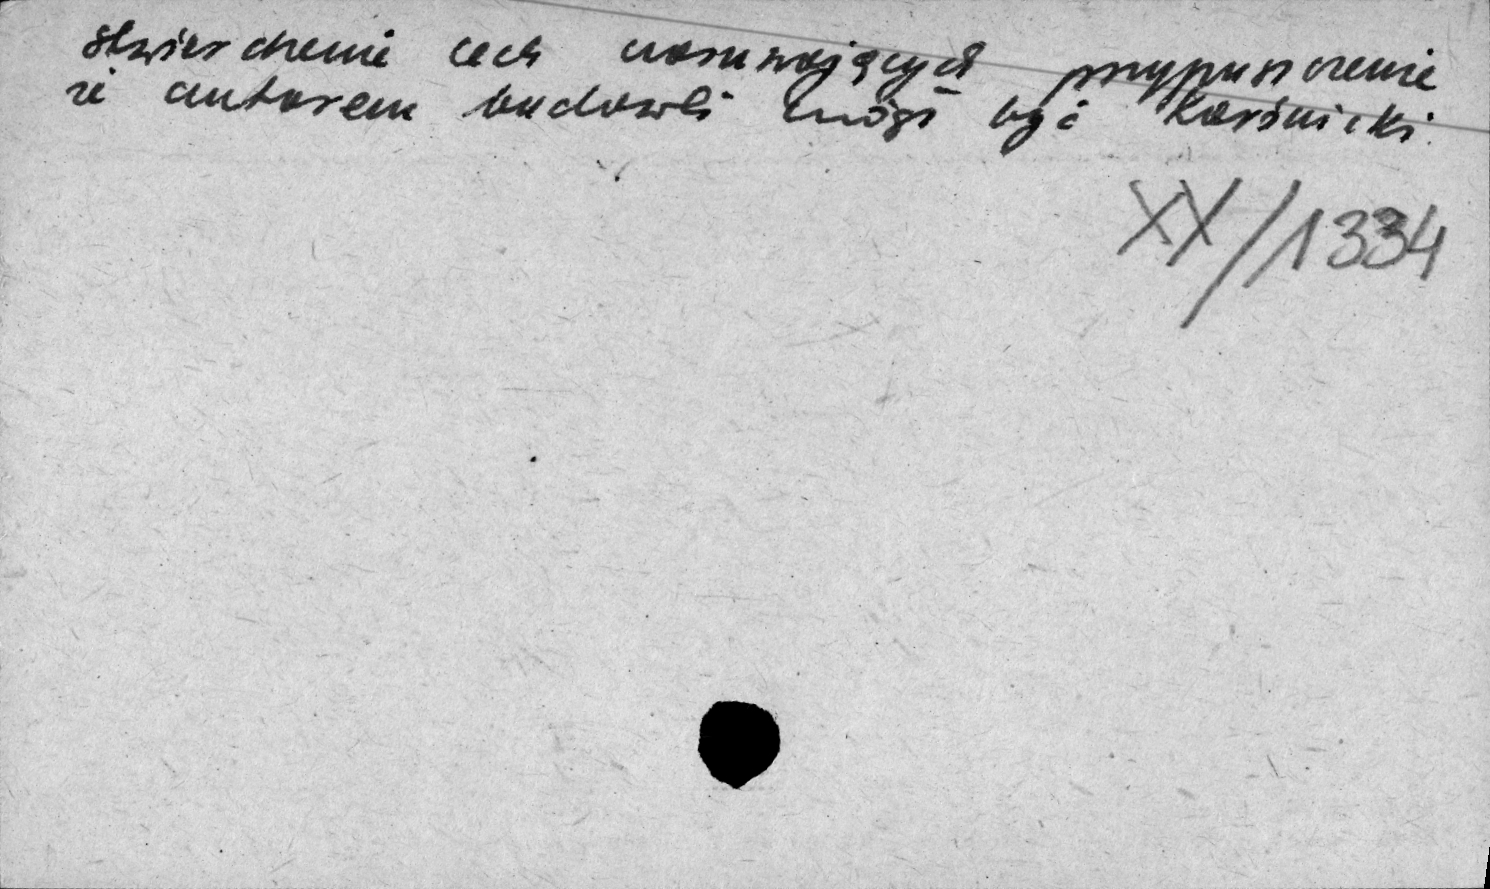 stwierdzenie cech nasuwających przypuszczenie
że autorem budowli mógł być Karśnicki.
XX/1334